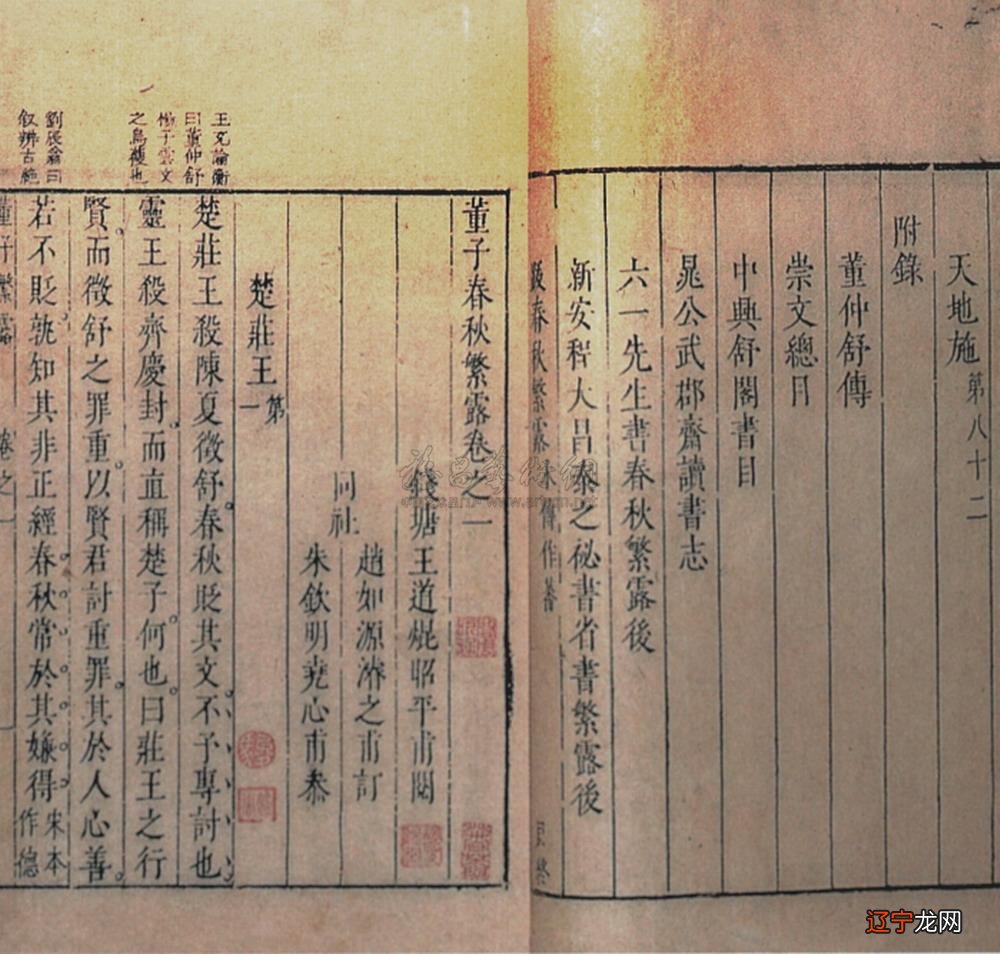 天地施第八十二
附錄
董仲舒傳
崇文總目
中興舒閣書目
晁公武郡齋讀書志
六一先生書春秋繁露後
新安程大昌泰之祕書省書繁露後
董子春秋繁露卷之一
錢塘王道焜昭平甫閱
同社
趙如源濬之甫訂
朱欽明堯心甫叅
楚莊王第一
楚莊王殺陳夏徵舒春秋貶其文不予專討也
靈王殺齊慶封而直稱楚子何也曰莊王之行
賢而徵舒之罪重以賢君討重罪其於人心善
若不貶孰知其非正經春秋常於其嫌得宋本作德
王充論衡
曰董仲舒
子雲文
之烏獲也
劉辰翁曰
叙辨古
辽宁龙网